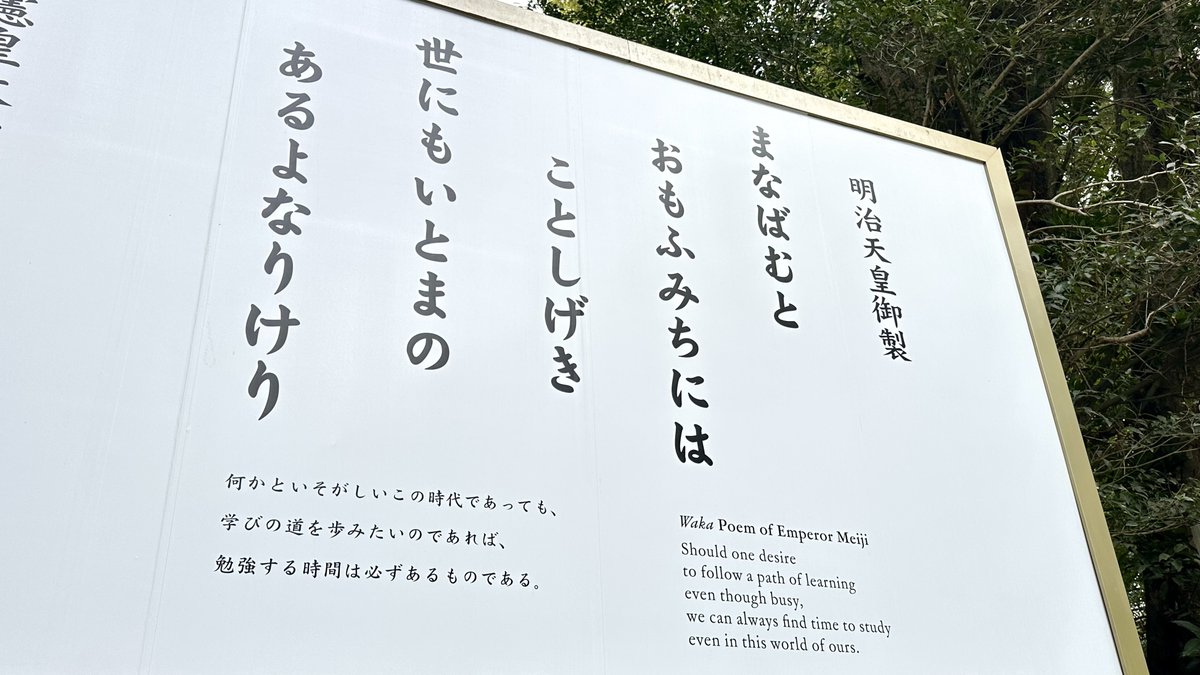 明治天皇御製
まなばむと
おもふみちには
ことしげき
世にもいとまの
あるよなりけり
何かといそがしいこの時代であっても、
学びの道を歩みたいのであれば、
勉強する時間は必ずあるものである。
Waka Poem of Emperor Meiji
Should one desire
to follow a path of learning
even though busy,
we can always find time to study
even in this world of ours.
憲皇太